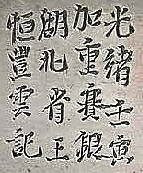 光緒壬寅
加重賽銀
湖北省王
恒豐雲記